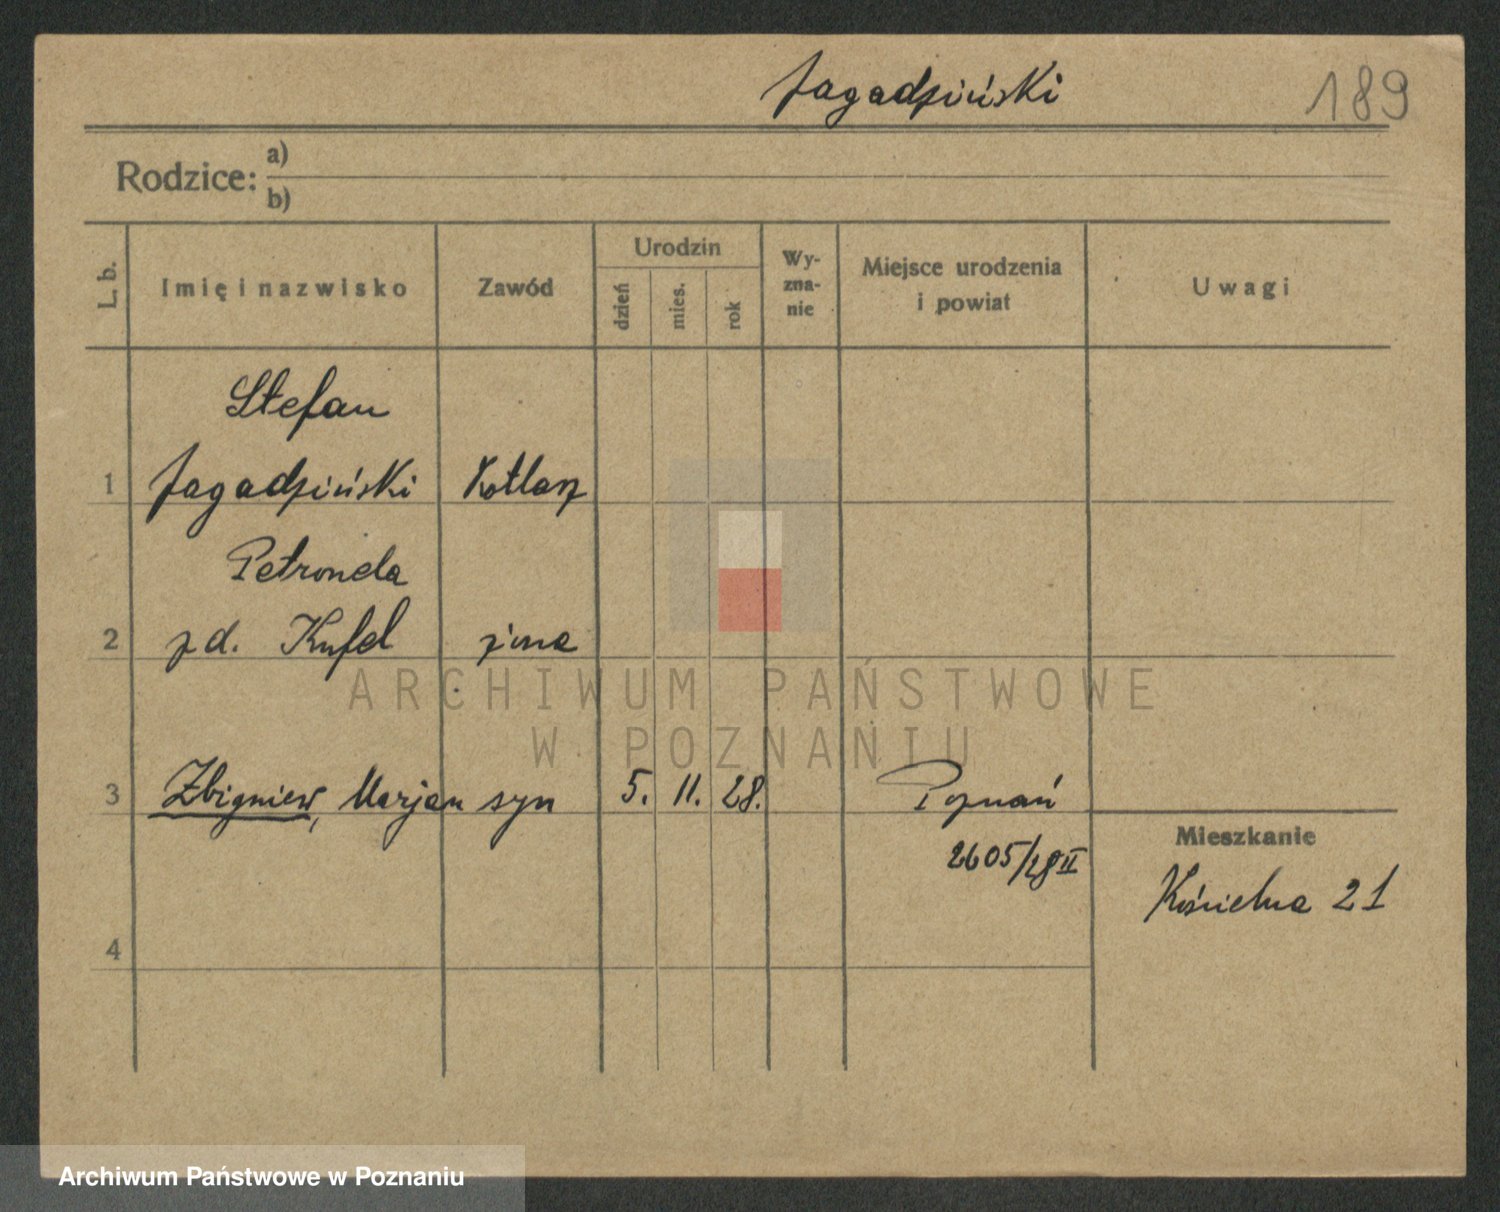 Jagadziński 189
Rodzice:
a)
b)
L. b.
Imię i nazwisko
Zawód
Urodzin
dzień
mies.
rok
Wy-
zna-
nie
Miejsce urodzenia
i powiat
Uwagi
Stefan
1 Jagadziński Kotlarz
Petronela
2 z d. Kufel żona
3 Zbigniew, Marjan syn 5. 11. 28. Poznań
2605/28 II
Mieszkanie
Kościelna 21
4
ARCHIWUM PAŃSTWOWE
W POZNANIU
Archiwum Państwowe w Poznaniu